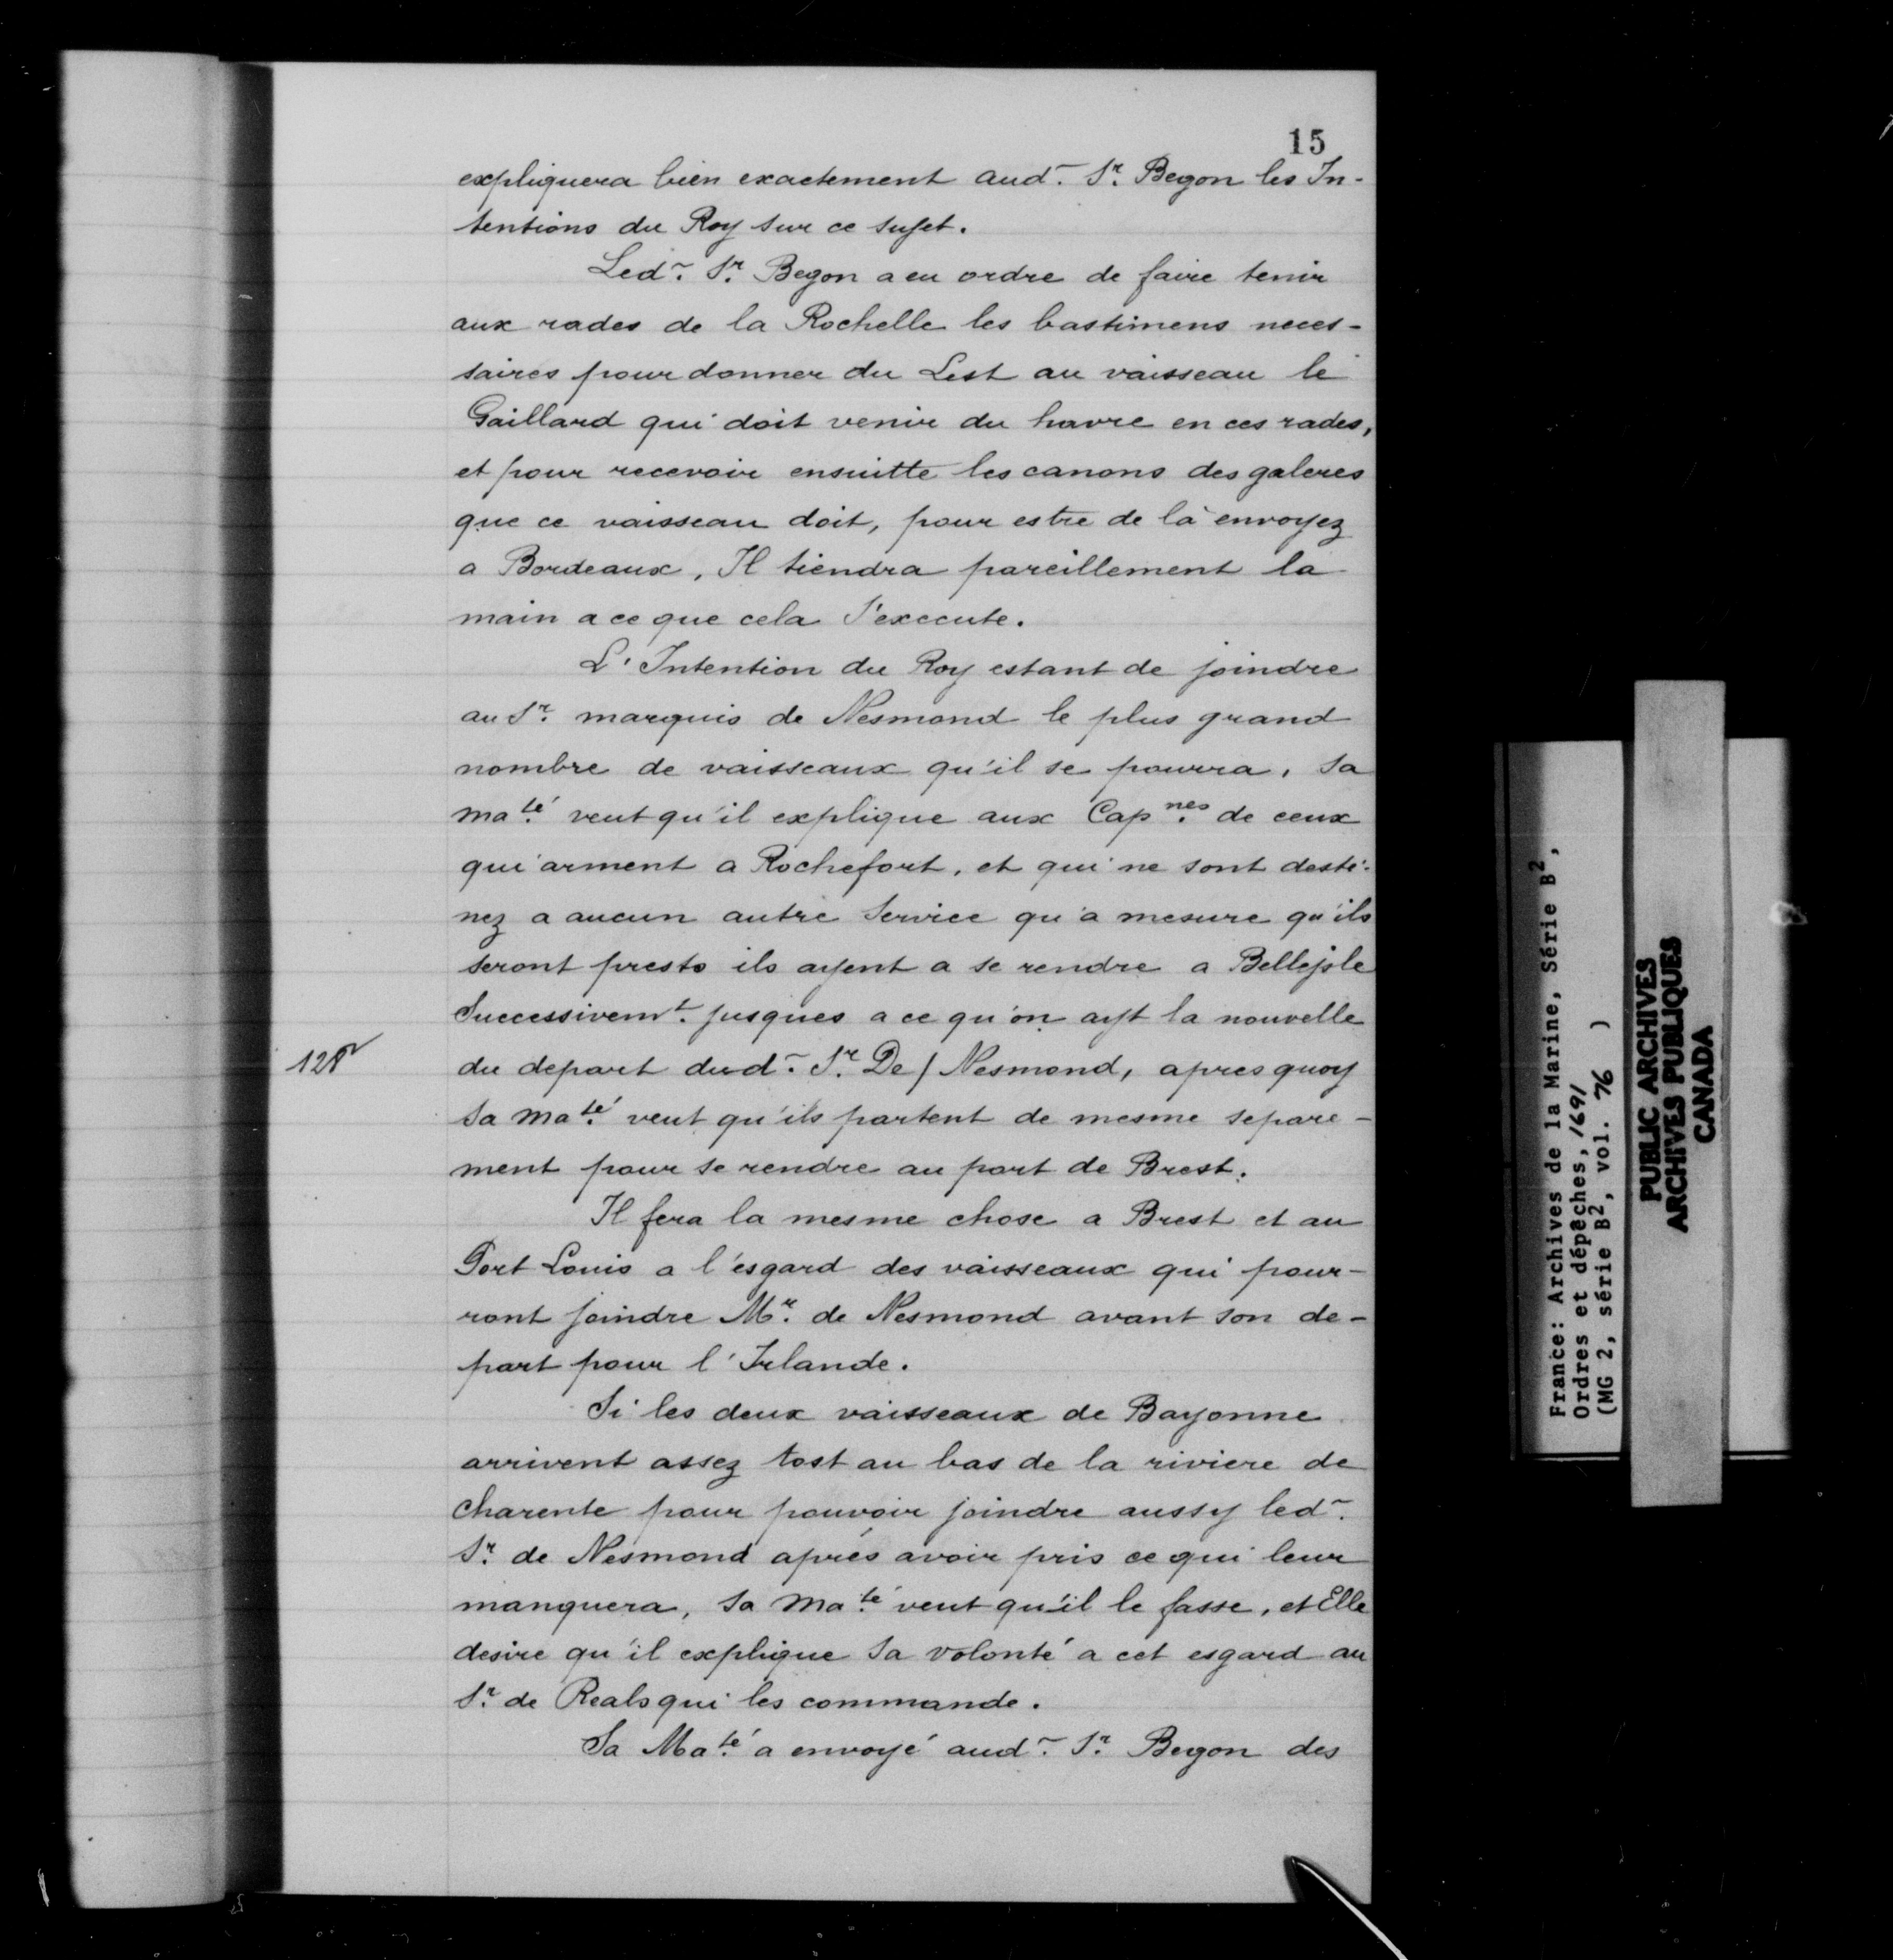 15
expliquera bien exactement aud. Sr. Begon les In-
tentions du Roy sur ce sujet.
Led. Sr. Begon a eu ordre de faire tenir
aux rades de la Rochelle les bastimens neces-
saires pour donner du Lest au vaisseau le
Gaillard qui doit venir du havre en ces rades,
et pour recevoir ensuitte les canons des galeres
que ce vaisseau doit, pour estre de là envoyez
a Bordeaux, Il tiendra pareillement la
main a ce que cela s'execute.
L'Intention du Roy estant de joindre
au Sr. marquis de Nesmond le plus grand
nombre de vaisseaux qu'il se pourra, Sa
maté. veut qu'il explique aux Capnes. de ceux
qui arment a Rochefort, et qui ne sont desti-
nez a aucun autre Service qu'a mesure qu'ils
seront prests ils ayent a se rendre a Bellejsle
Successivemt. jusques a ce qu'on ayt la nouvelle
128
du depart dud. Sr. De / Nesmond, apres quoy
Sa maté. veut qu'ils partent de mesme separe-
ment pour se rendre au port de Brest.
Il fera la mesme chose a Brest et au
Port Louis a l'esgard des vaisseaux qui pour-
ront joindre Mr. de Nesmond avant son de-
part pour l'Irlande.
Si les deux vaisseaux de Bayonne
arrivent assez tost au bas de la riviere de
Charente pour pouvoir joindre aussy led.
Sr. de Nesmond aprés avoir pris ce qui leur
manquera, Sa Maté. veut qu'il le fasse, et Elle
desire qu'il explique Sa volonté a cet esgard au
Sr. de Reals qui les commande.
Sa Maté. a envoyé aud. Sr. Begon des
France: Archives de la Marine, Série B2,
Ordres et dépêches, 1691
(MG 2, série B2, vol. 76 )
PUBLIC ARCHIVES
ARCHIVES PUBLIQUES
CANADA